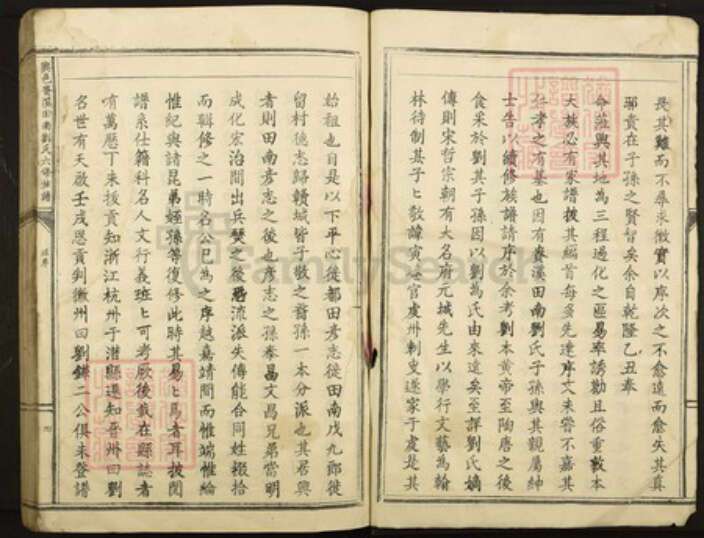 是其難而不尋求徵實以序次之不愈遠而愈失其真
耶貴在子孫之賢智矣余自乾隆乙丑奉
命莅興其地為三程過化之區易率誘勸且俗重敦本
大族必有家譜披其編首每多先達序文未嘗不嘉其
仁孝之有基也因有睿溪田南劉氏子孫與其親屬紳
士告以續修族譜請序於余考劉本黃帝至陶唐之後
食采於劉其子孫因以劉為氏由來遠矣至詳劉氏嫡
傳則宋哲宗朝有大名府元城先生以學行文藝為翰
林待制其子子敬諱寅 官虔州刺史遂家于虔是其
始祖也自是以下平心徙都田彥志徙田南戊九郎徙
留村德志歸贛城皆子敬之裔孫一本分派也其居興
者則田南彥志之後也彥志之孫泰昌文昌兄弟當明
成化宏治間出兵燹之後恐流派失傳能合同姓綴拾
而輯修之一時名公已為之序越嘉靖間而惟端惟綸
惟紀與諸昆弟姪孫等復修此時其易七馬者耳披閱
譜系仕籍科名人文行義班七可考厥後載在縣誌者
有萬曆丁未拔貢知浙江杭州于潛縣選知晉州曰劉
名世有天啟壬戌恩貢判徽州曰劉鐸二公俱未登譜
興邑睿溪田南劉氏六修族譜
FamilySearch